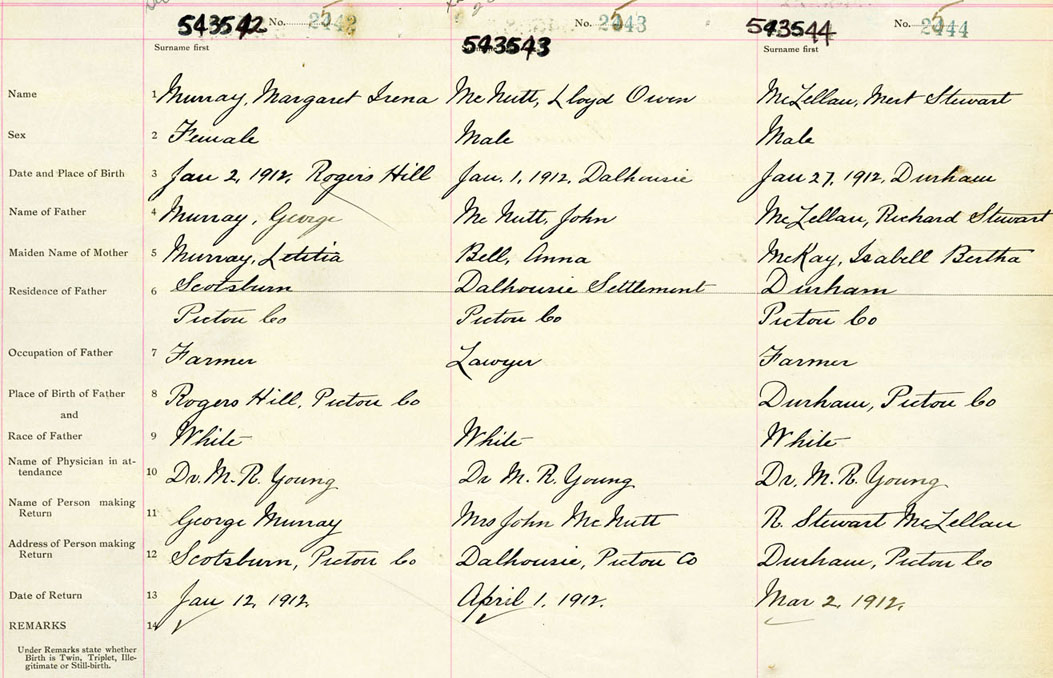 543542 No. 2543 543543 No. 2543 543544 No. 2544
Surname first Surname first
Name 1 Murray, Margaret Irena McNutt, Lloyd Owen McLellan, Mert Stewart
Sex 2 Female Male Male
Date and Place of Birth 3 Jan 2, 1912, Rogers Hill Jan. 1, 1912, Dalhousie Jan 27, 1912, Durham
Name of Father 4 Murray, George McNutt, John McLellan, Richard Stewart
Maiden Name of Mother 5 Murray, Letitia Bell, Anna McKay, Isabell Bertha
Residence of Father 6 Scotsburn Dalhousie Settlement Durham
Pictou Co Pictou Co Pictou Co
Occupation of Father 7 Farmer Lawyer Farmer
Place of Birth of Father 8 Rogers Hill, Pictou Co Durham, Pictou Co
and
Race of Father 9 White White White
Name of Physician in at-
tendance 10 Dr. M. R. Young Dr M. R. Young Dr. M. R. Young
Name of Person making
Return 11 George Murray Mrs John McNutt R. Stewart McLellan
Address of Person making
Return 12 Scotsburn, Pictou Co Dalhousie, Pictou Co Durham, Pictou Co
Date of Return 13 Jan 12, 1912 April 1, 1912. Mar 2, 1912.
REMARKS 14
Under Remarks state whether
Birth is Twin, Triplet, Ille-
gitimate or Still-birth.